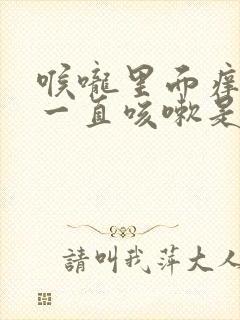 喉嚨里面痒
一直咳嗽是
請叫我萍大人